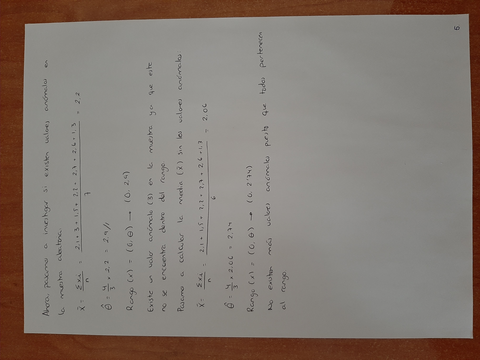 Ahora pasamos a investigar si existen valores anómalos en
la muestra aleatoria.
x̄ = Σxi / n = (2.1 + 3 + 1.5 + 2.2 + 2.7 + 2.6 + 1.3) / 7 = 2.2
θ̂ = 4/3 × 2.2 = 2.9//
Rango (x) = (0, θ) → (0, 2.9)
Existe un valor anómalo (3) en la muestra ya que este
no se encuentra dentro del rango
Pasamos a calcular la media (x̄) sin los valores anómalos
x̄ = Σxi / n = (2.1 + 1.5 + 2.2 + 2.7 + 2.6 + 1.3) / 6 = 2.06
θ̂ = 4/3 × 2.06 = 2.74
Rango (x) = (0, θ) → (0, 2.74)
No existen más valores anómalos puesto que todos pertenecen
al rango